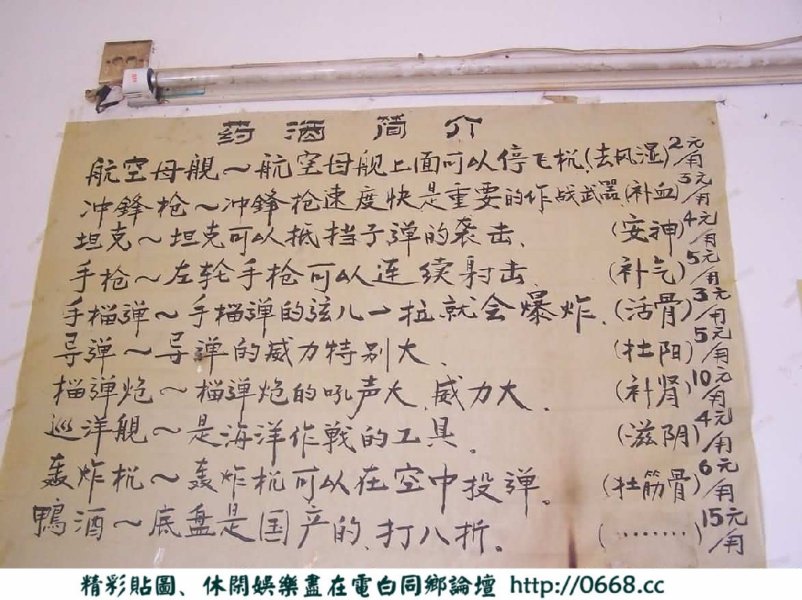 药酒简介
航空母舰～航空母舰上面可以停飞机(去风湿)2元/角
冲鋒枪～冲鋒枪速度快是重要的作战武器(补血)3元/角
坦克～坦克可以抵挡子弹的袭击. (安神)4元/角
手枪～左轮手枪可以连续射击. (补气)5元/角
手榴弹～手榴弹的弦儿一拉就会爆炸.(活骨)3元/角
导弹～导弹的威力特别大、(壮阳)5元/角
榴弹炮～榴弹炮的吼声大、威力大、(补肾)10元/角
巡洋舰～是海洋作戰的工具。(滋阴)4元/角
轰炸机～轰炸机可以在空中投弹。(壮筋骨)6元/角
鴨酒～底盘是国产的、打八折. (········)15元/角
精彩貼圖、休閑娛樂盡在電白同鄉論壇 http://0668.cc